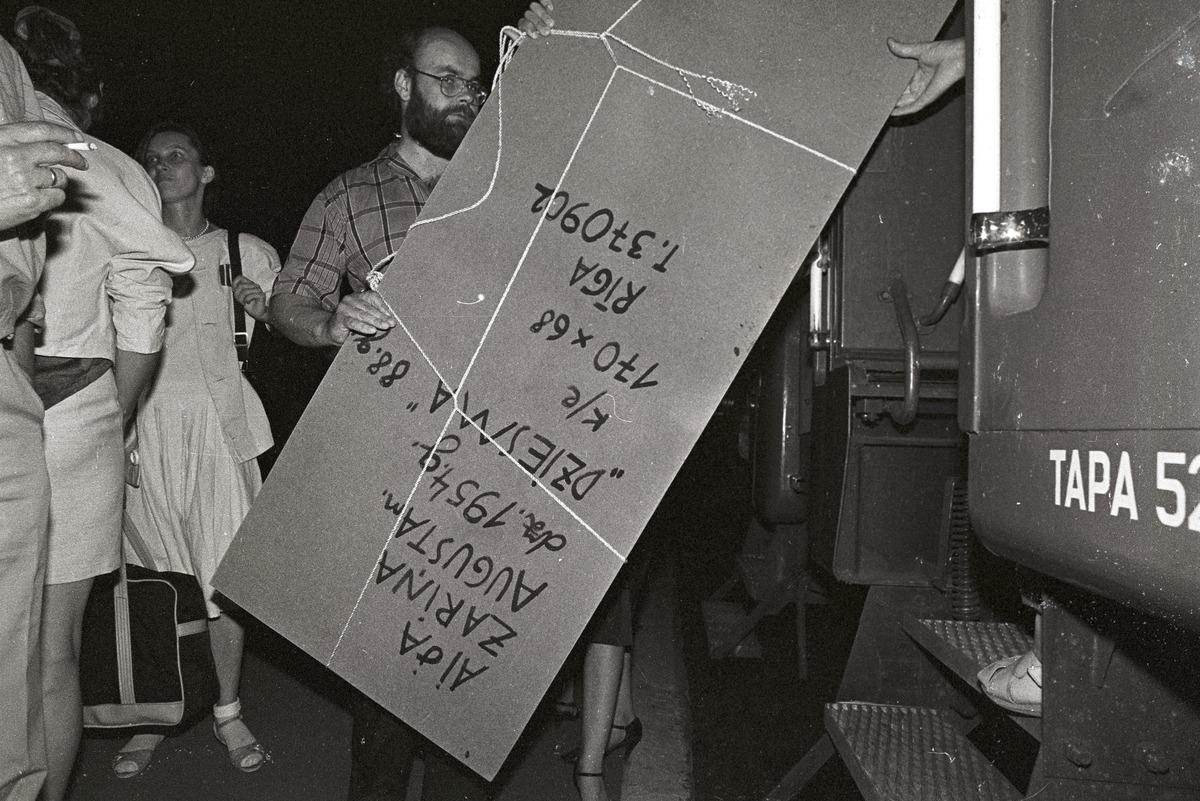 AIJA
ZARIŅA
AUGUSTAm.
dz. 1954.g.
„DZIESMA" 88.g.
k/e
170 x 68
RĪGA
T. 370902
TAPA 52